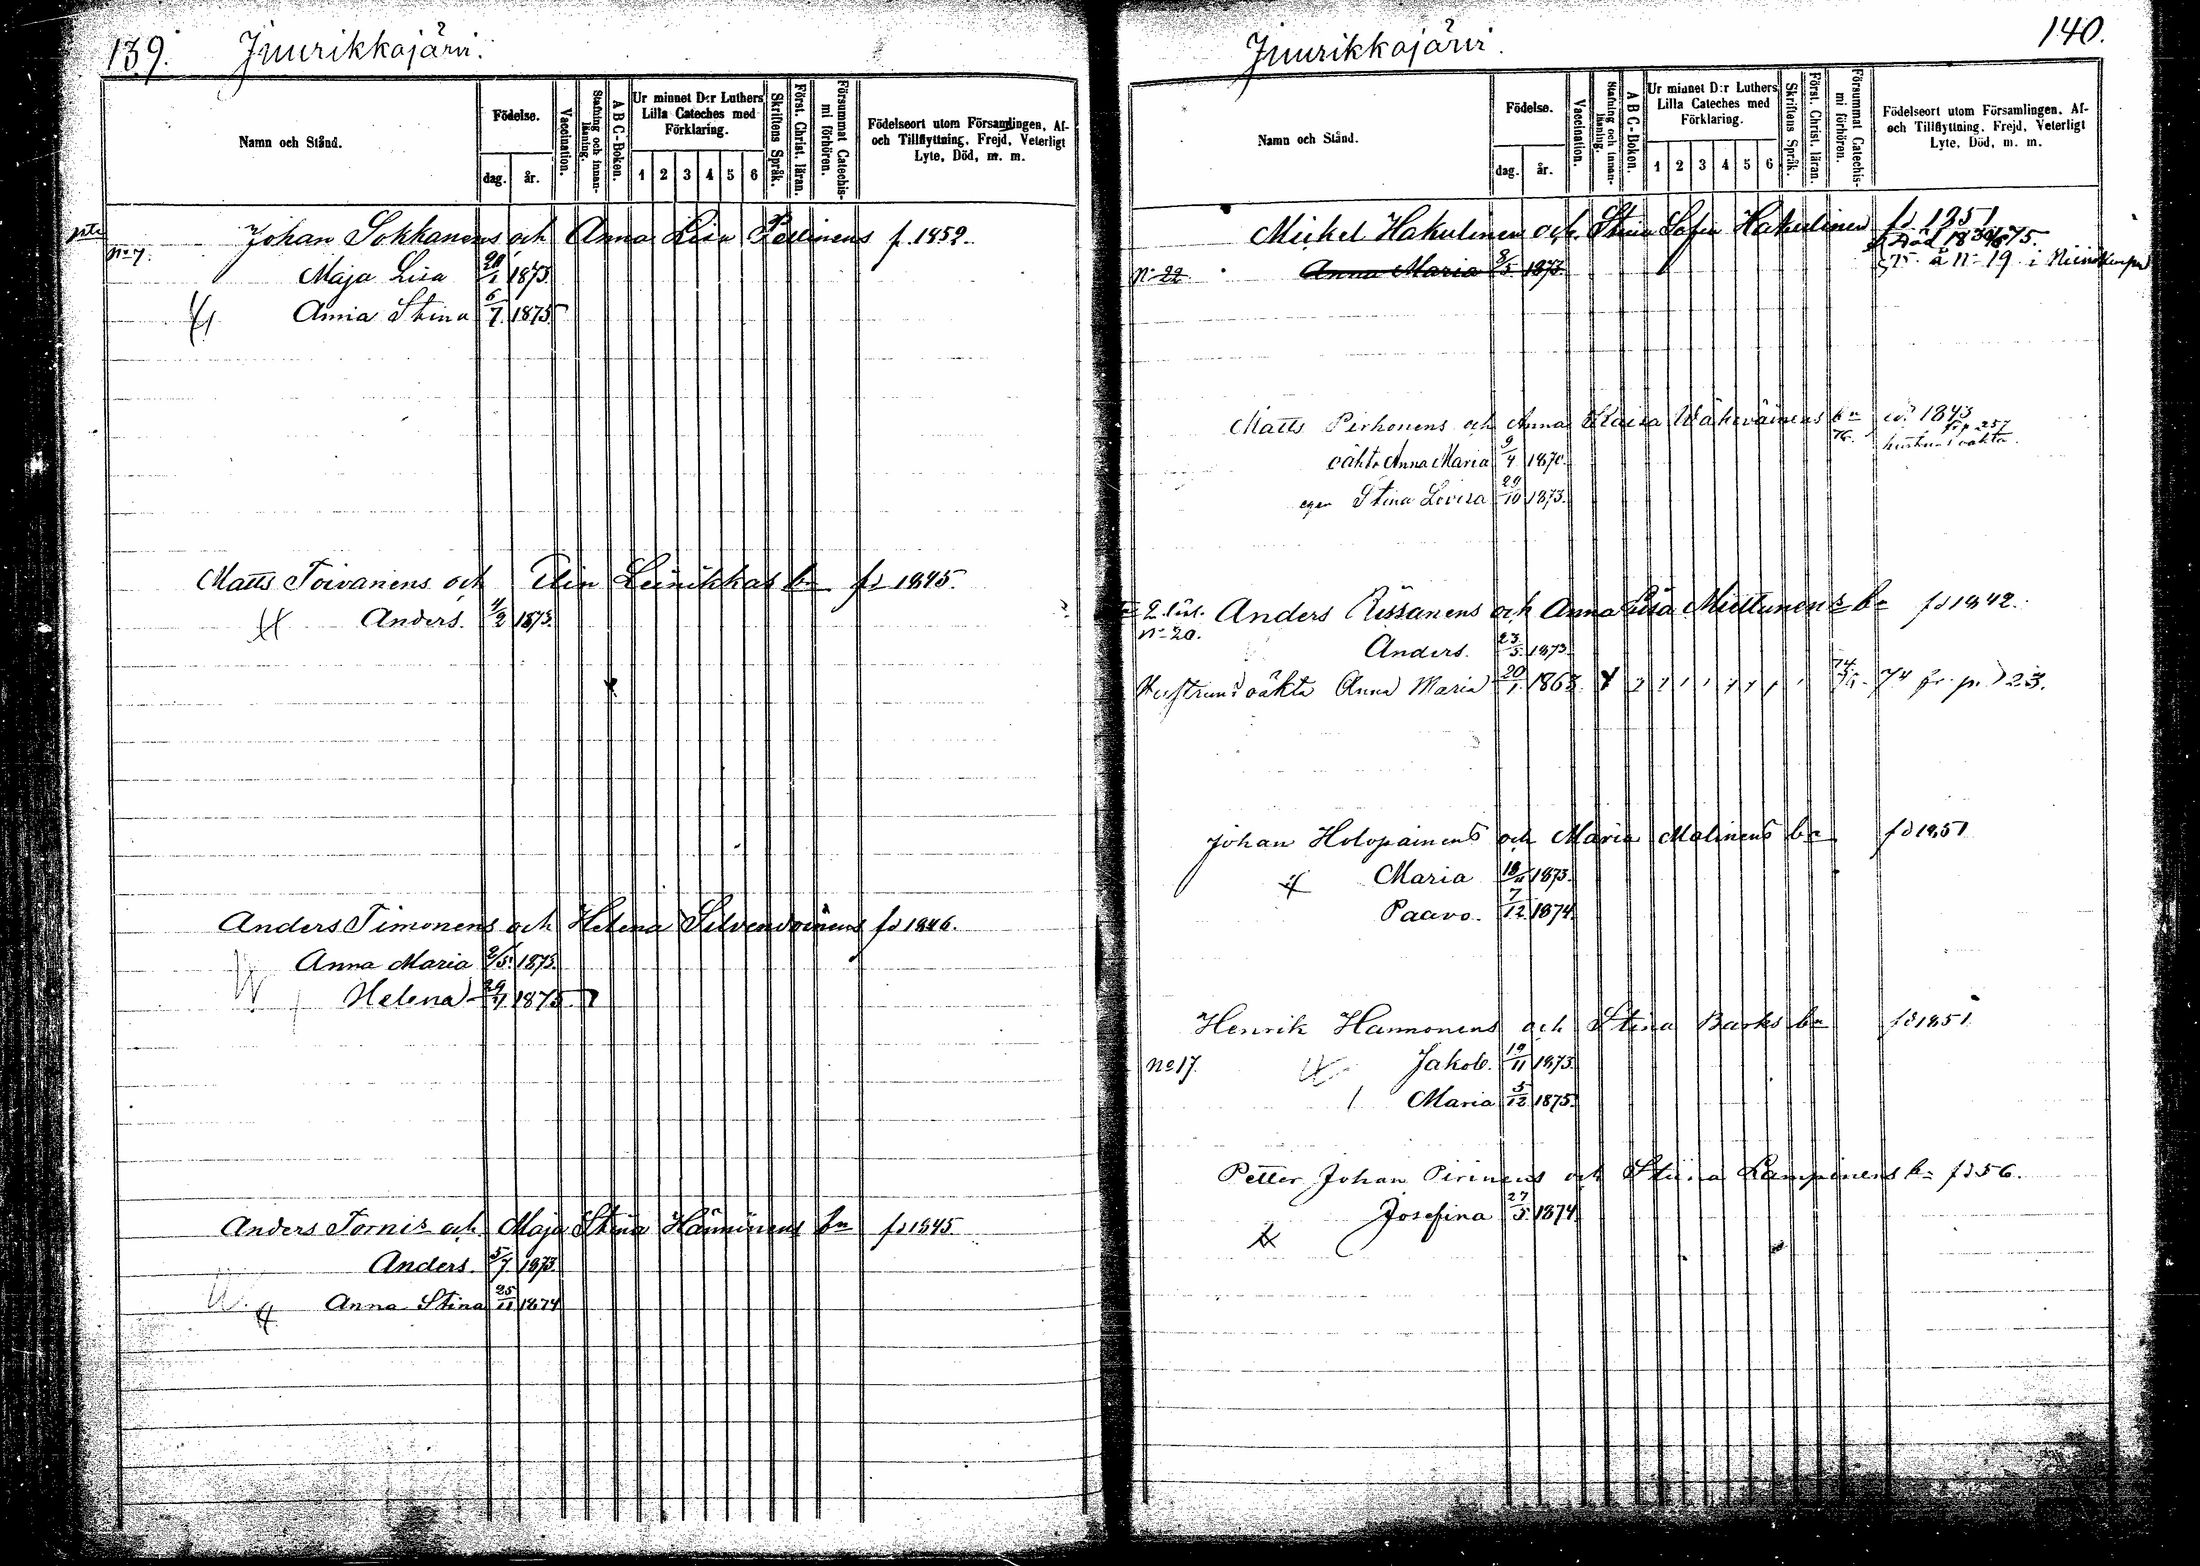 139. Juurikkajärvi.
Namn och Stånd.
Födelse.
dag. år.
Vaccination.
Stafning och innan-läsning.
A B C-Boken.
Ur minnet D:r Luthers Lilla Cateches med Förklaring.
1 2 3 4 5 6
Skriftens Språk.
Först. Christ. läran.
Försummat Catechis-mi förhören.
Födelseort utom Församlingen, Af-
och Tillflyttning, Frejd, Veterligt
Lyte, Död, m. m.
No 7. Johan Sokkanens och Anna Lisa Pellinens f. 1852.
Maja Lisa 1873.
Anna Stina 6/7 1875
Matts Toivanens och Elin Leinikkas bn fd 1845.
Anders. 1/2 1873.
Anders Timonens och Helena Silvendoinens fd 1846.
Anna Maria 2/5 1873.
Helena 29/7 1875
Anders Tornis och Maja Stina Hänninens bn fd 1845.
Anders. 5/7 1873.
Anna Stina 25/11 1874
Juurikkajärvi. 140.
Namn och Stånd.
Födelse.
dag. år.
Vaccination.
Stafning och innan-läsning.
A B C-Boken.
Ur minnet D:r Luthers Lilla Cateches med Förklaring.
1 2 3 4 5 6
Skriftens Språk.
Först. Christ. läran.
Försummat Catechis-mi förhören.
Födelseort utom Församlingen, Af-
och Tillflyttning, Frejd, Veterligt
Lyte, Död, m. m.
Mickel Hakulinen och Stina Sofia Hakulinen fd 1851
No 22 Anna Maria 8/5 1873. å No 19 i
Matts Pirhonens och Anna Kaisa Wäkeväinens bn 1843
oäkta Anna Maria 9/4 1870. hustruns oäkta.
egen Stina Lovisa 29/10 1873.
No 20. Anders Rissanens och Anna Lisa Miettunens bn fd 1842.
Anders. 23/5 1873.
Hustruns oäkta Anna Maria 20/1 1868 74 fr. p. 723.
Johan Holopainens och Maria Malinens bn fd 1851
Maria 18/11 1873.
Paavo. 7/12 1874
Henrik Hannonens och Stina Barks bn fd 1851
No 17. Jakob. 19/11 1873.
Maria 5/12 1875.
Petter Johan Pirinens och Stiina Lampinens bn fd 56.
Josefina 27/5 1874